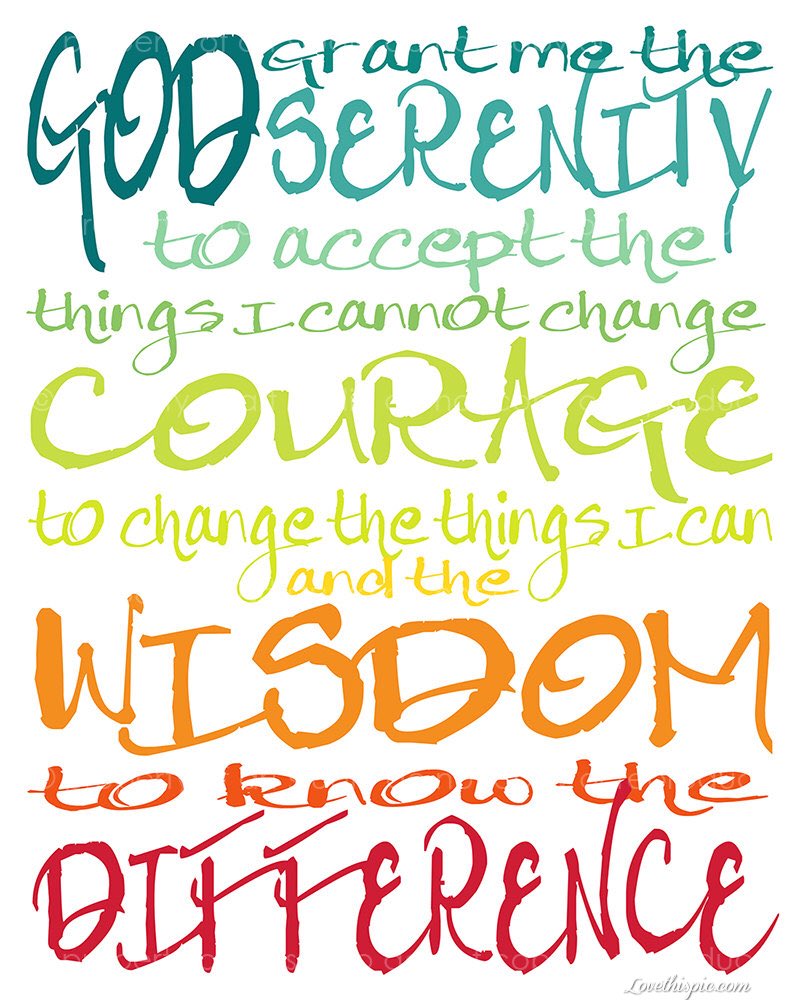 GOD grant me the
SERENITY
to accept the
things I cannot change
COURAGE
to change the things I can
and the
WISDOM
to know the
DIFFERENCE
Lovethispic.com